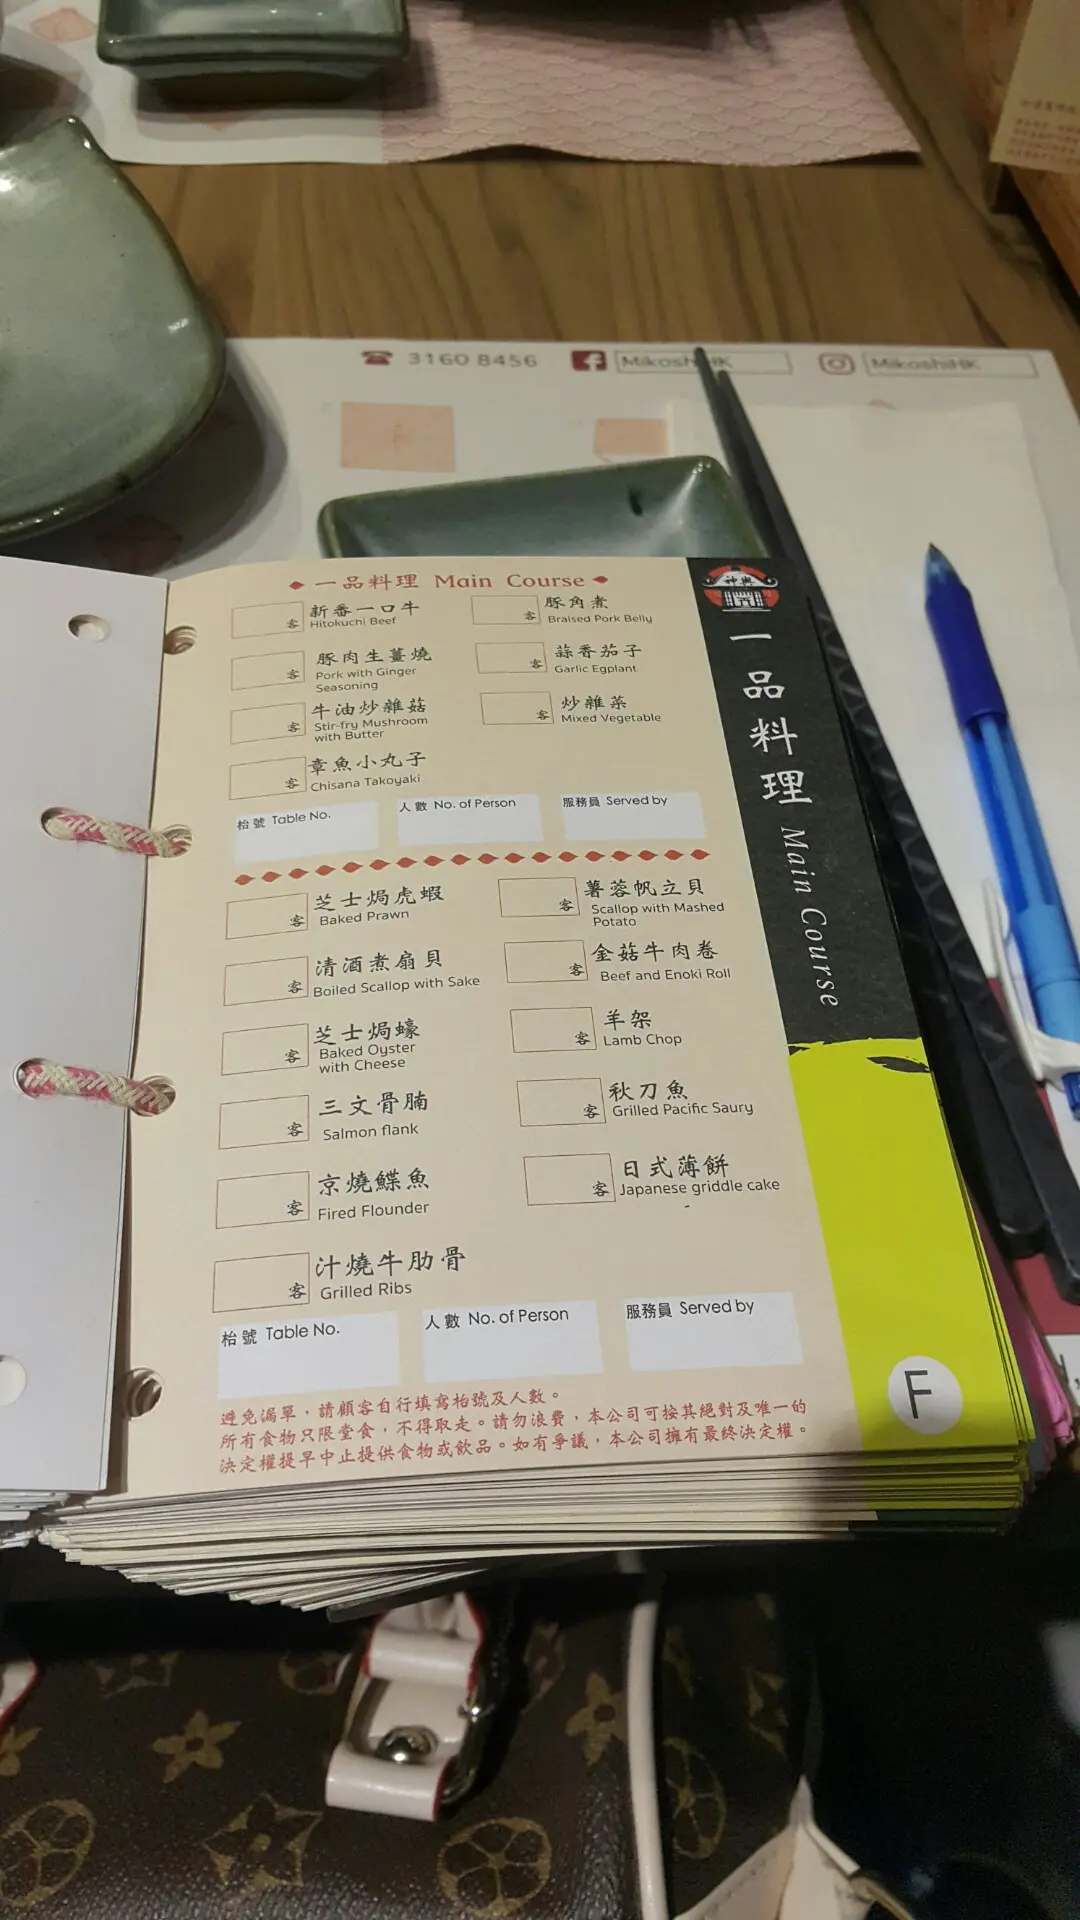 3160 8456
MikoshiHK
MikoshiHK
一品料理 Main Course
新番一口牛
Hitokuchi Beef
客
豚角煮
Braised Pork Belly
客
豚肉生薑燒
Pork with Ginger
Seasoning
客
蒜香茄子
Garlic Egplant
客
牛油炒雜菇
Stir-fry Mushroom
with Butter
客
炒雜菜
Mixed Vegetable
客
章魚小丸子
Chisana Takoyaki
客
枱號 Table No.
人數 No. of Person
服務員 Served by
芝士焗虎蝦
Baked Prawn
客
薯蓉帆立貝
Scallop with Mashed
Potato
客
清酒煮扇貝
Boiled Scallop with Sake
客
金菇牛肉卷
Beef and Enoki Roll
客
芝士焗蠔
Baked Oyster
with Cheese
客
羊架
Lamb Chop
客
三文骨腩
Salmon flank
客
秋刀魚
Grilled Pacific Saury
客
京燒鰈魚
Fired Flounder
客
日式薄餅
Japanese griddle cake
客
汁燒牛肋骨
Grilled Ribs
客
枱號 Table No.
人數 No. of Person
服務員 Served by
避免漏單，請顧客自行填寫枱號及人數。
所有食物只限堂食，不得取走。請勿浪費，本公司可按其絕對及唯一的
決定權提早中止提供食物或飲品。如有爭議，本公司擁有最終決定權。
神輿
一品料理 Main Course
F